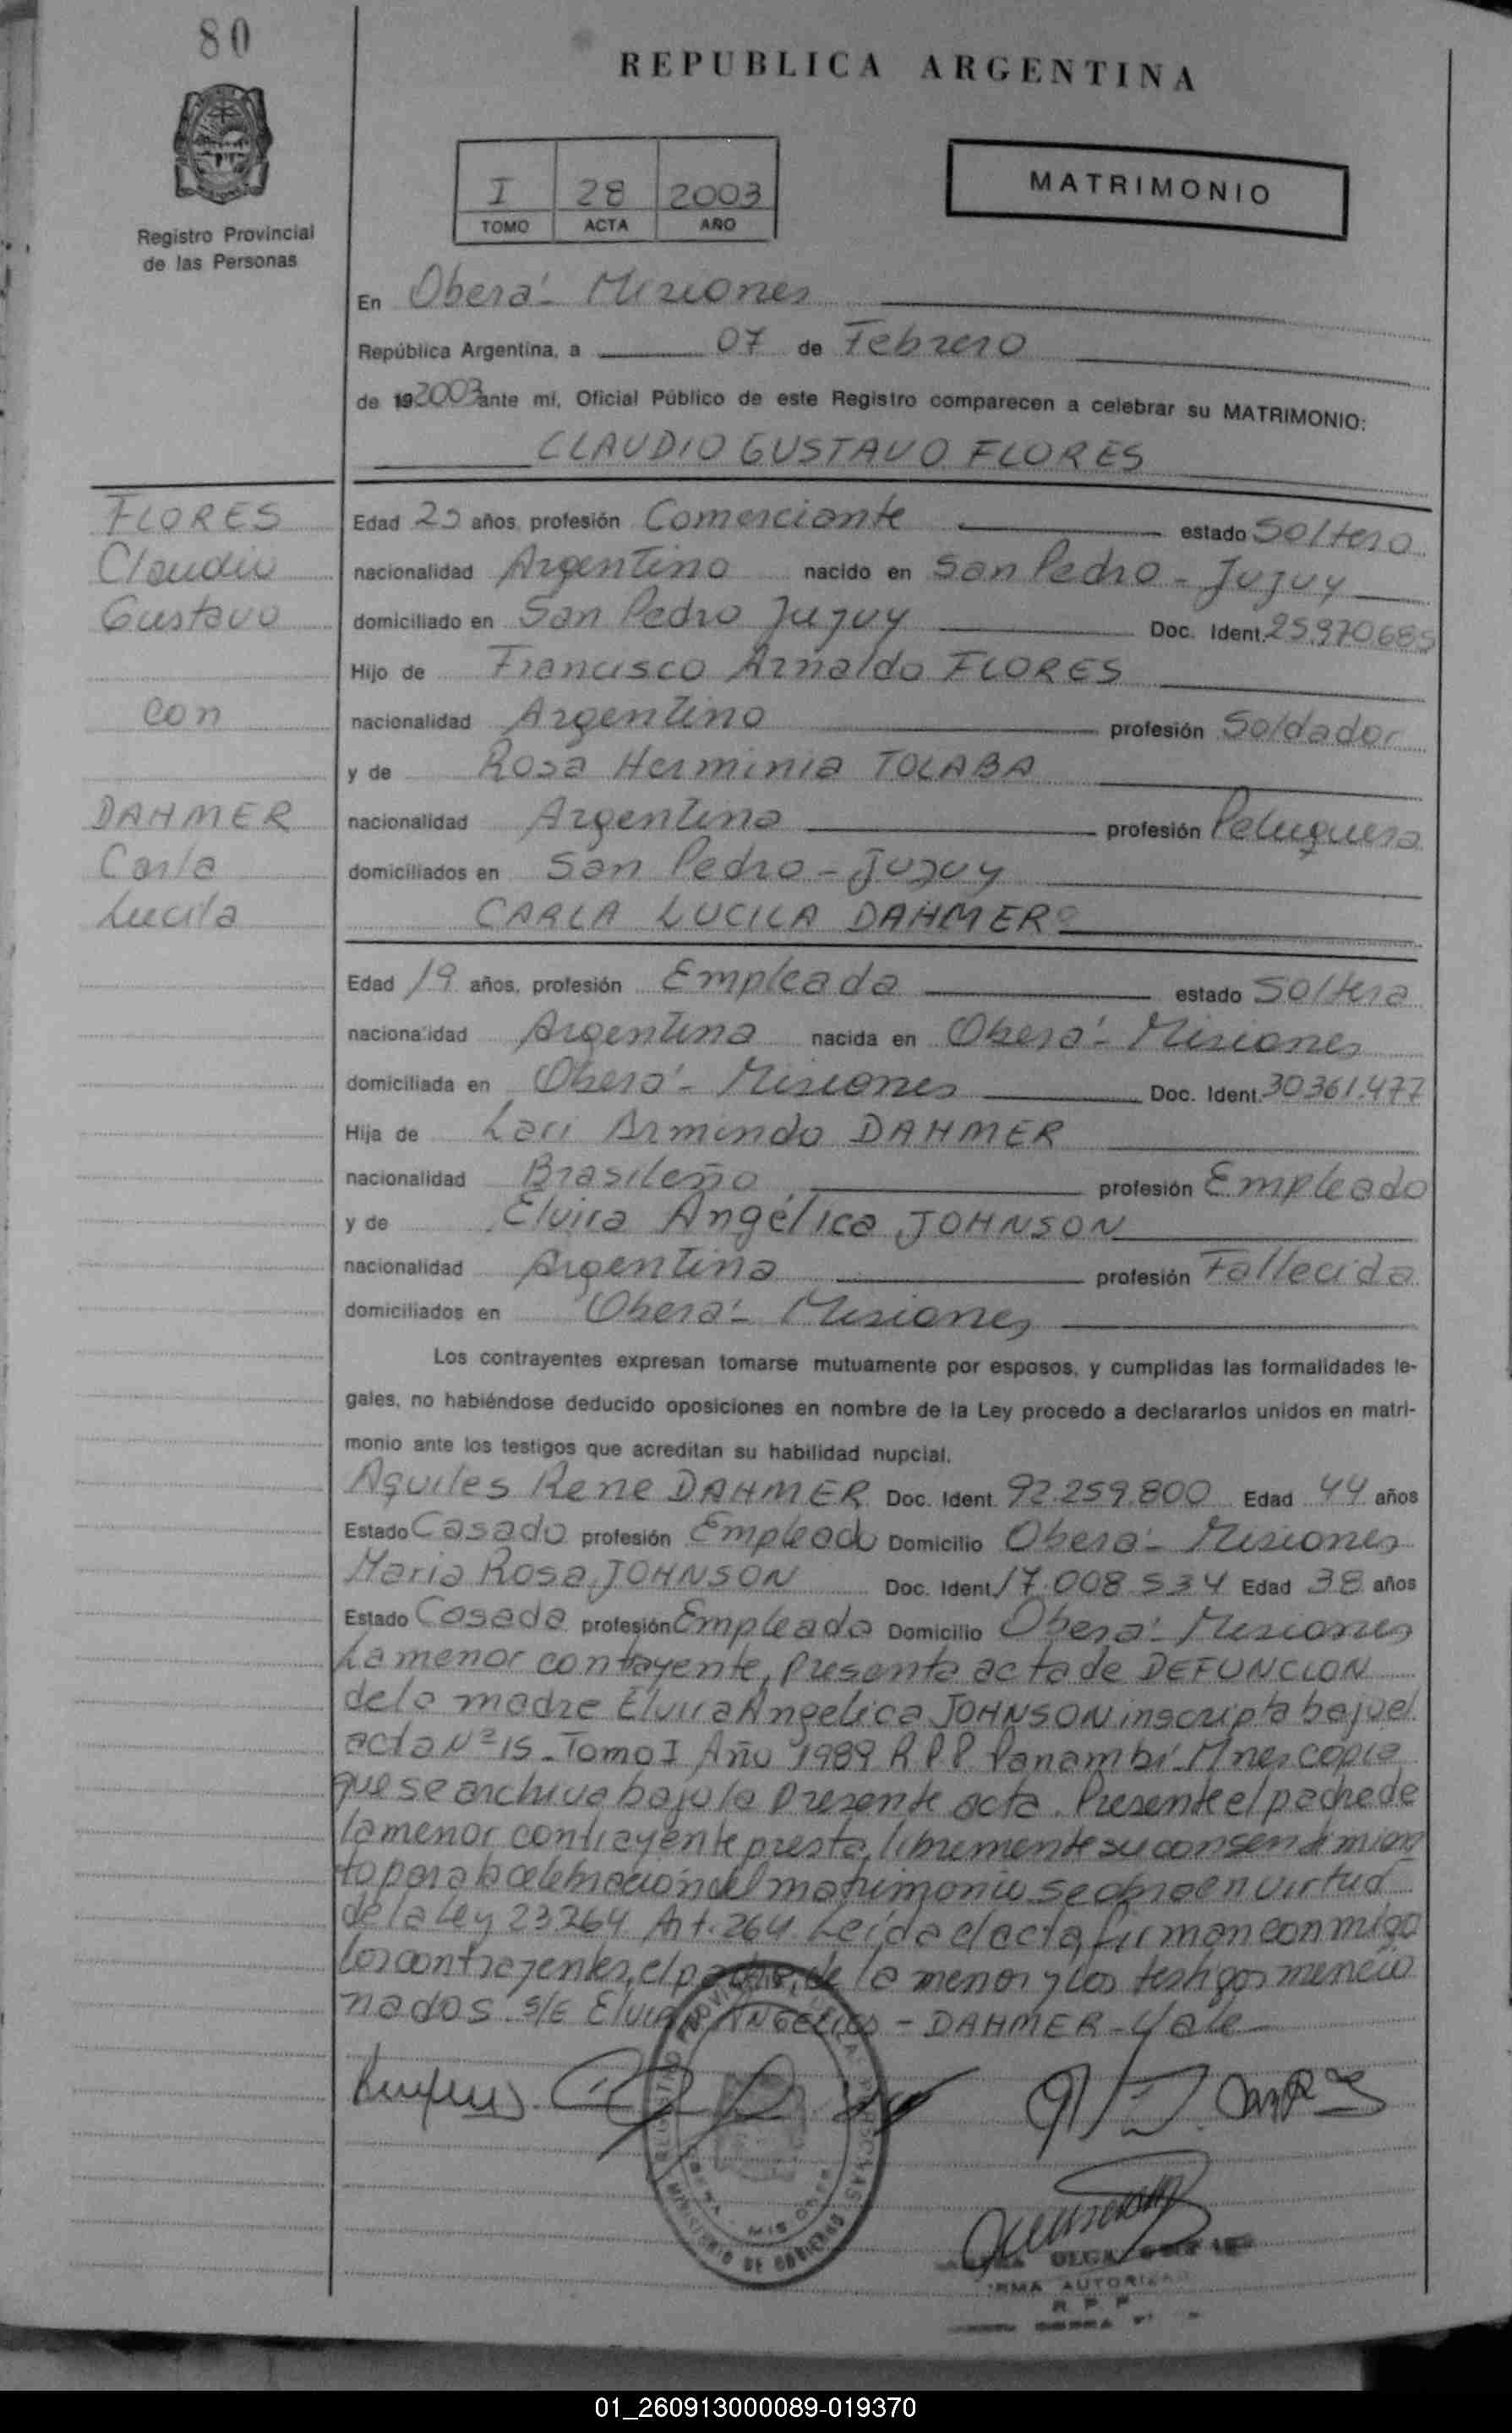 80
REPUBLICA ARGENTINA
I 28 2003
TOMO ACTA AÑO
MATRIMONIO
Registro Provincial
de las Personas
En Oberá - Misiones
República Argentina, a 07 de Febrero
de 19 2003 ante mí, Oficial Público de este Registro comparecen a celebrar su MATRIMONIO:
CLAUDIO GUSTAVO FLORES
FLORES
Claudio
Gustavo
con
DAHMER
Carla
Lucila
Edad 25 años, profesión Comerciante estado Soltero
nacionalidad Argentino nacido en San Pedro - Jujuy
domiciliado en San Pedro Jujuy Doc. Ident. 25.970.685
Hijo de Francisco Arnaldo FLORES
nacionalidad Argentino profesión Soldador
y de Rosa Herminia TOLABA
nacionalidad Argentina profesión Peluquera
domiciliados en San Pedro - Jujuy
CARLA LUCILA DAHMER
Edad 19 años, profesión Empleada estado Soltera
nacionalidad Argentina nacida en Oberá - Misiones
domiciliada en Oberá - Misiones Doc. Ident. 30.361.477
Hija de Lari Armindo DAHMER
nacionalidad Brasileño profesión Empleado
y de Elvira Angélica JOHNSON
nacionalidad Argentina profesión Fallecida
domiciliados en Oberá - Misiones
Los contrayentes expresan tomarse mutuamente por esposos, y cumplidas las formalidades le-
gales, no habiéndose deducido oposiciones en nombre de la Ley procedo a declararlos unidos en matri-
monio ante los testigos que acreditan su habilidad nupcial.
Aquiles Rene DAHMER Doc. Ident. 92.259.800 Edad 44 años
Estado Casado profesión Empleado Domicilio Oberá - Misiones
Maria Rosa JOHNSON Doc. Ident. 17.008.534 Edad 38 años
Estado Casada profesión Empleada Domicilio Oberá - Misiones
La menor contrayente, presenta acta de DEFUNCION
de la madre Elvira Angelica JOHNSON inscripta bajo el
acta Nº 15 - Tomo I Año 1989 R P P Panambí Mnes copia
que se archiva bajo la presente acta. Presente el padre de
la menor contrayente presta libremente su consentimien
to para la celebración del matrimonio se obra en virtud
de la Ley 23264 Art. 264 Leída el acta, firman conmigo
los contrayentes, el padre de la menor y los testigos mencio
nados. S/E Elvira ANGELICA - DAHMER - Vale
MINISTERIO DE GOBIERNO
OLGA
FIRMA AUTORIZADA
R P P
01_260913000089-019370